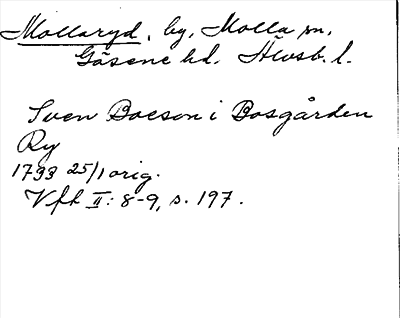 Mollaryd, by, Molla sn,
Gäsene hd. Älvsb. l.
Sven Boeson i Bosgården
Ry
1793 25/1 orig.
Vfh II: 8-9, s. 197.